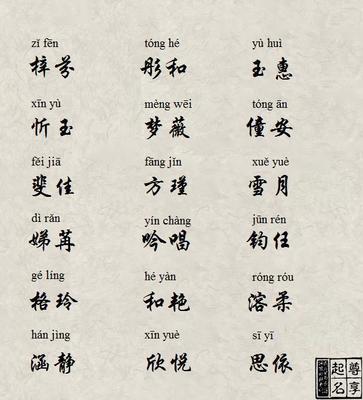 zǐ fēn tóng hé yù huì
梓芬 彤和 玉惠
xīn yù mèng wēi tóng ān
忻玉 梦薇 僮安
fěi jiā fāng jǐn xuě yuè
斐佳 方瑾 雪月
dì rǎn yín chàng jūn rén
娣苒 吟唱 钧任
gé líng hé yàn róng róu
格玲 和艳 溶柔
hán jìng xīn yuè sī yī
涵静 欣悦 思依
尊享
起名